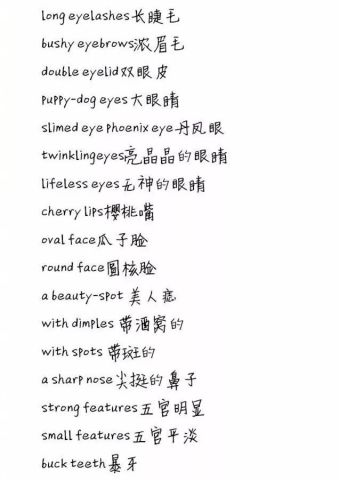 long eyelashes长睫毛
bushy eyebrows浓眉毛
double eyelid双眼皮
puppy-dog eyes大眼睛
slimed eye phoenix eye丹凤眼
twinklingeyes亮晶晶的眼睛
lifeless eyes无神的眼睛
cherry lips樱桃嘴
oval face瓜子脸
round face圆核脸
a beauty-spot 美人痣
with dimples 带酒窝的
with spots 带斑的
a sharp nose尖挺的鼻子
strong features五官明显
small features五官平淡
buck teeth暴牙